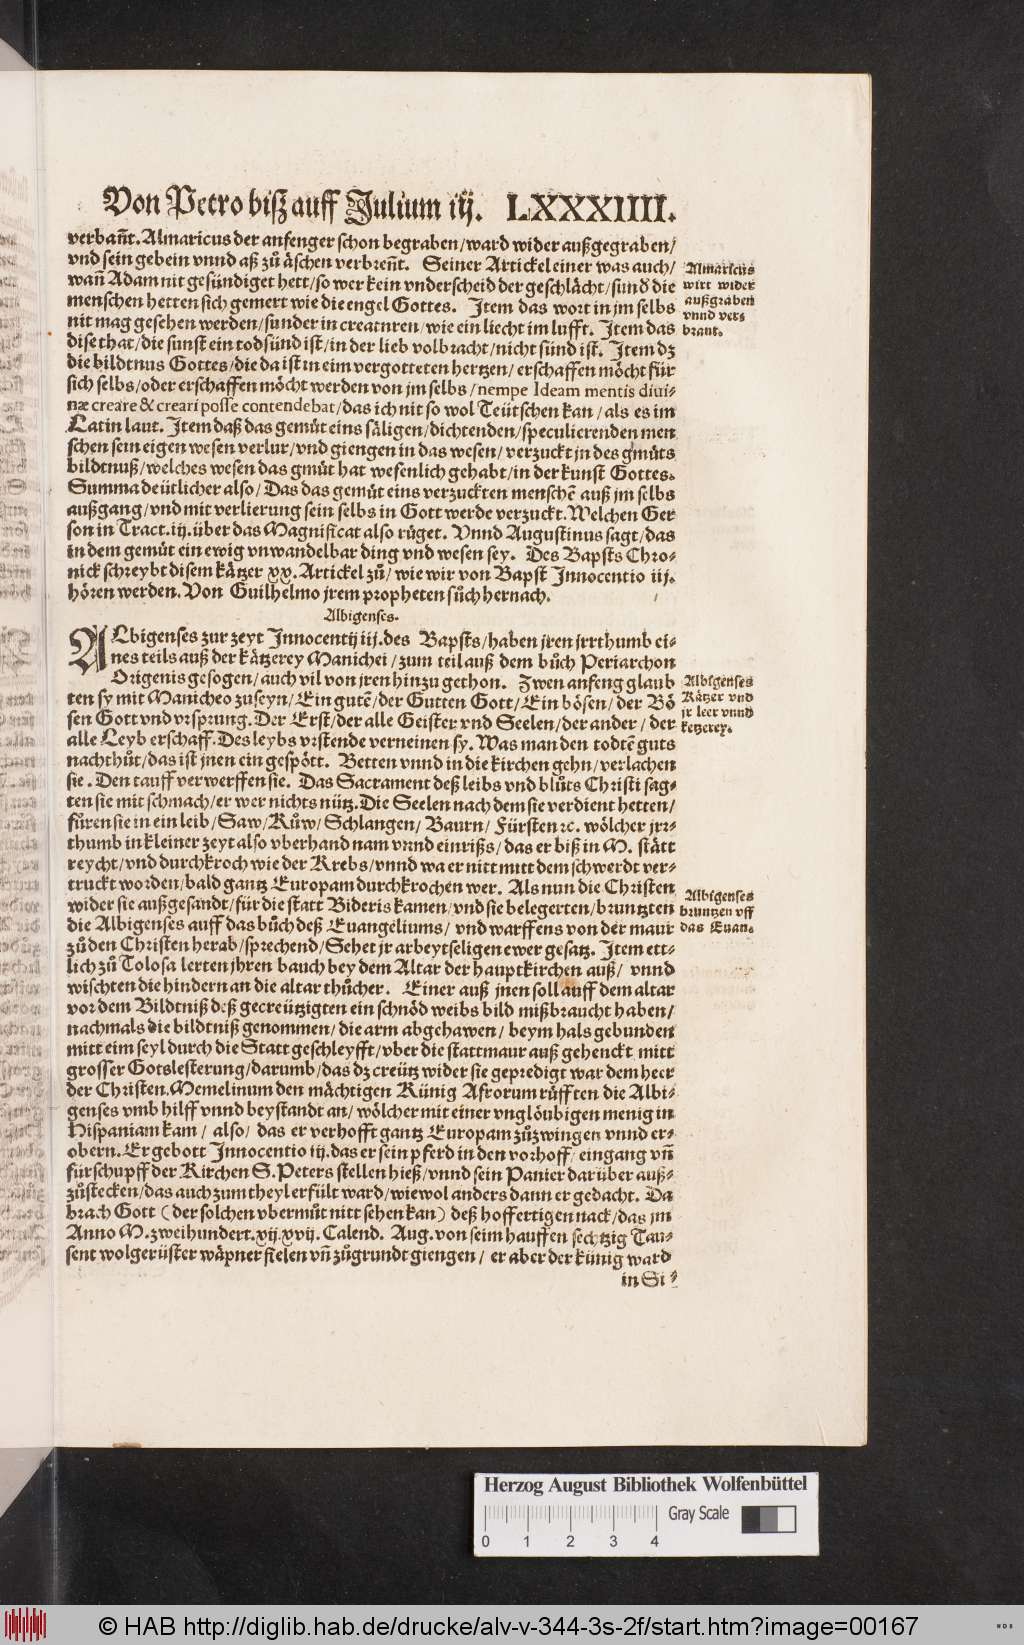 Von Petro biß auff Julium iij. LXXXIIII.
verbañt. Almaricus der anfenger schon begraben/ward wider außgegraben/
vnd sein gebein vnnd aß zů äschen verbreñt. Seiner Artickel einer was auch/
wañ Adam nit gesündiget hett/so wer kein vnderscheid der geschlächt/sund die
menschen hetten sich gemert wie die engel Gottes. Item das wort in jm selbs
nit mag gesehen werden/sunder in creaturen/wie ein liecht im lufft. Item das
dise that/die sunst ein todsünd ist/in der lieb volbracht/nicht sünd ist. Item dz
die bildtnus Gottes/die da ist in eim vergotteten hertzen/erschaffen möcht für
sich selbs/oder erschaffen möcht werden von jm selbs/nempe Ideam mentis diui-
næ creare & creari posse contendebat/das ich nit so wol Teütschen kan/als es im
Latin laut. Item daß das gemůt eins säligen/dichtenden/speculierenden men
schen sein eigen wesen verlur/vnd giengen in das wesen/verzuckt jn des gmůts
bildtnuß/welches wesen das gmůt hat wesenlich gehabt/in der kunst Gottes.
Summa deütlicher also/Das das gemůt eins verzuckten menschē auß jm selbs
außgang/vnd mit verlierung sein selbs in Gott werde verzuckt. Welchen Ger
son in Tract.iij.über das Magnificat also rüget. Vnnd Augustinus sagt/das
in dem gemůt ein ewig vnwandelbar ding vnd wesen sey. Des Bapsts Chro-
nick schreybt disem kätzer xx.Artickel zů/wie wir von Bapst Innocentio iij.
hören werden. Von Guilhelmo jrem propheten sůch hernach.
Albigenses.
ALbigenses zur zeyt Innocentij iij.des Bapsts/haben jren jrrthumb ei-
nes teils auß der kätzerey Manichei/zum teil auß dem bůch Periarchon
Origenis gesogen/auch vil von jren hinzu gethon. Zwen anfeng glaub
ten sy mit Manicheo zu seyn/Ein gutē/der Gutten Gott/Ein bösen/der Bö
sen Gott vnd vrsprung. Der Erst/der alle Geister vnd Seelen/der ander/der
alle Leyb erschaff. Des leybs vrstende verneinen sy. Was man den todtē guts
nachthůt/das ist jnen ein gespött. Betten vnnd in die kirchen gehn/verlachen
sie. Den tauff verwerffen sie. Das Sacrament deß leibs vnd blůts Christi sag-
ten sie mit schmach/er wer nichts nütz. Die Seelen nach dem sie verdient hetten/
fůren sie in ein leib/Saw/Kůw/Schlangen/Baurn/Fürsten ⁊c. wölcher jrr-
thumb in kleiner zeyt also vberhand nam vnnd einrißs/das er biß in M. stätt
reycht/vnd durchkroch wie der Krebs/vnnd wa er nitt mitt dem schwerdt ver-
truckt worden/bald gantz Europam durchkrochen wer. Als nun die Christen
wider sie außgesandt/für die statt Bideris kamen/vnd sie belegerten/bruntzten
die Albigenses auff das bůch deß Euangeliums/vnd warffens von der maur
zů den Christen herab/sprechend/Sehet jr arbeytseligen ewer gesatz. Item ett-
lich zů Tolosa lerten jhren bauch bey dem Altar der hauptkirchen auß/vnnd
wischten die hindern an die altar thůcher. Einer auß jnen soll auff dem altar
vor dem Bildtniß deß gecreützigten ein schnöd weibs bild mißbraucht haben/
nachmals die bildtniß genommen/die arm abgehawen/beym hals gebunden
mitt eim seyl durch die Statt geschleyfft/vber die stattmaur auß gehenckt mitt
grosser Gotslesterung/darumb/das dz creütz wider sie gepredigt war dem heer
der Christen. Memelinum den mächtigen Künig Afrorum růfften die Albi-
genses vmb hilff vnnd beystandt an/wölcher mit einer vnglöubigen menig in
Hispaniam kam/also/das er verhofft gantz Europam zůzwingen vnnd er-
obern. Er gebott Innocentio iij.das er sein pferd in den vorhoff/eingang vñ
fürschupff der Kirchen S.Peters stellen hieß/vnnd sein Panier darüber auß-
zůstecken/das auch zum theyl erfült ward/wiewol anders dann er gedacht. Da
brach Gott (der solchen vbermůt nitt sehen kan) deß hoffertigen nack/das im
Anno M.zweihundert.xij.xvij.Calend. Aug. von seim hauffen sechtzig Tau-
sent wolgerüster wäpner fielen vñ zůgrundt giengen/er aber der künig ward
in Si-
Almaricus
wirt wider
außgraben
vnnd ver-
brant.
Albigenses
Kätzer vnd
jr leer vnnd
ketzerey.
Albigenses
bruntzen vff
das Euan.
Herzog August Bibliothek Wolfenbüttel
Gray Scale
0 1 2 3 4
© HAB http://diglib.hab.de/drucke/alv-v-344-3s-2f/start.htm?image=00167